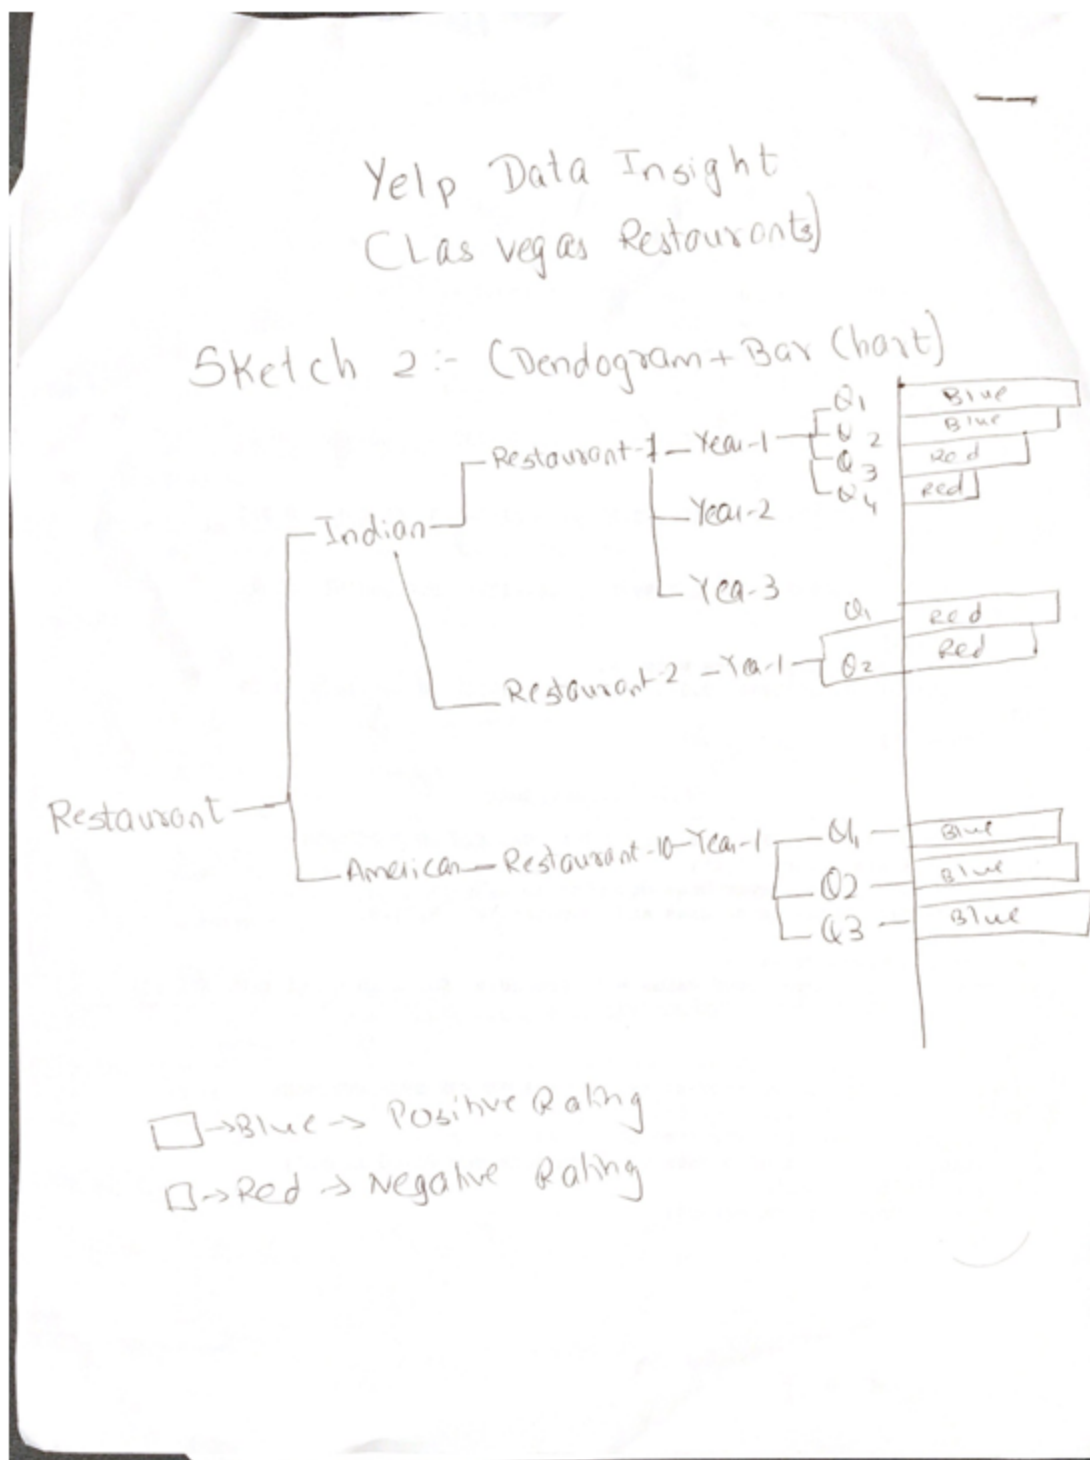 Yelp Data Insight
(Las vegas Restaurants)
Sketch 2:- (Dendogram + Bar Chart)
Q1 Blue
Restaurant-1 Year-1 Q2 Blue
Q3 Red
Q4 Red
Year-2
Indian
Yea-3
Q1 Red
Restaurant-2 - Yea-1 Q2 Red
Restaurant
American Restaurant-10 Year-1 Q1 Blue
Q2 Blue
Q3 Blue
→Blue → Positive Rating
→Red → Negative Rating